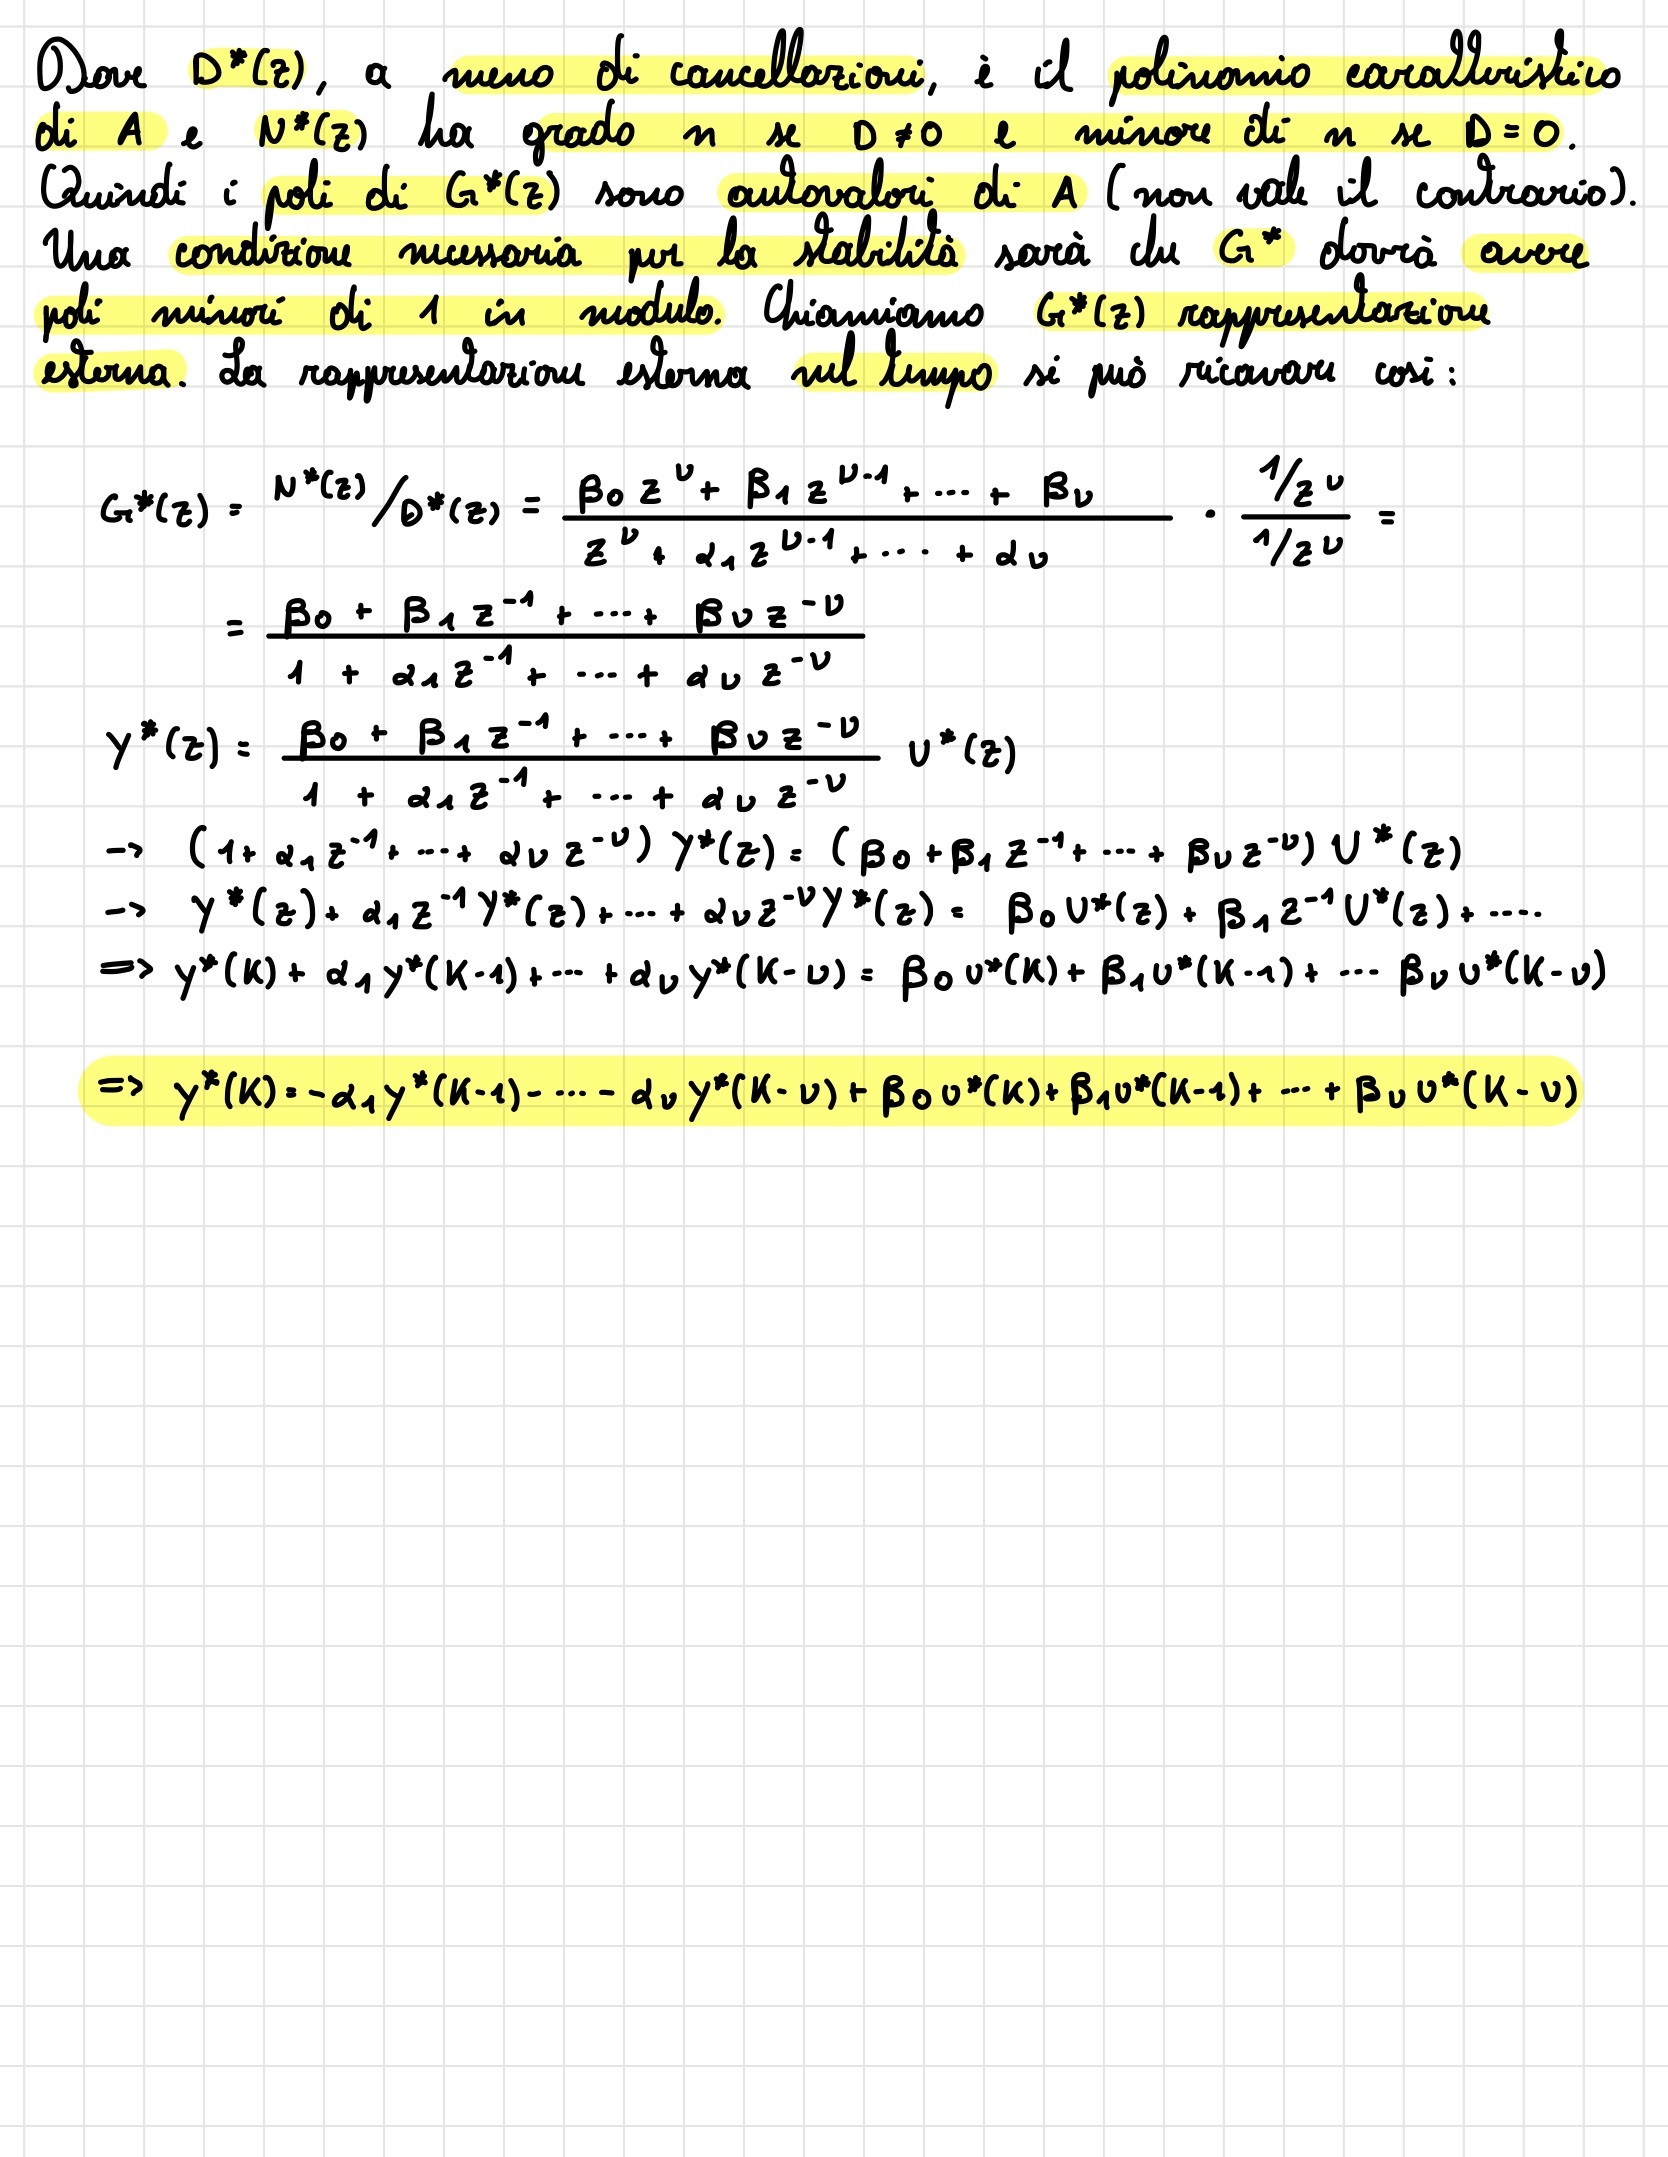 Dove D*(z), a meno di cancellazioni, è il polinomio caratteristico
di A e N*(z) ha grado n se D ≠ 0 e minore di n se D = 0.
Quindi i poli di G*(z) sono autovalori di A (non vale il contrario).
Una condizione necessaria per la stabilità sarà che G* dovrà avere
poli minori di 1 in modulo. Chiamiamo G*(z) rappresentazione
esterna. La rappresentazione esterna nel tempo si può ricavare così:
G*(z) = N*(z)/D*(z) = (β₀ z^ν + β₁ z^(ν-1) + ... + β_ν) / (z^ν + α₁ z^(ν-1) + ... + α_ν) · (1/z^ν) / (1/z^ν) =
= (β₀ + β₁ z^-1 + ... + β_ν z^-ν) / (1 + α₁ z^-1 + ... + α_ν z^-ν)
Y*(z) = (β₀ + β₁ z^-1 + ... + β_ν z^-ν) / (1 + α₁ z^-1 + ... + α_ν z^-ν) U*(z)
-> (1 + α₁ z^-1 + ... + α_ν z^-ν) Y*(z) = (β₀ + β₁ z^-1 + ... + β_ν z^-ν) U*(z)
-> Y*(z) + α₁ z^-1 Y*(z) + ... + α_ν z^-ν Y*(z) = β₀ U*(z) + β₁ z^-1 U*(z) + ....
=> y*(K) + α₁ y*(K-1) + ... + α_ν y*(K-ν) = β₀ u*(K) + β₁ u*(K-1) + ... β_ν u*(K-ν)
=> y*(K) = -α₁ y*(K-1) - ... - α_ν y*(K-ν) + β₀ u*(K) + β₁ u*(K-1) + ... + β_ν u*(K-ν)